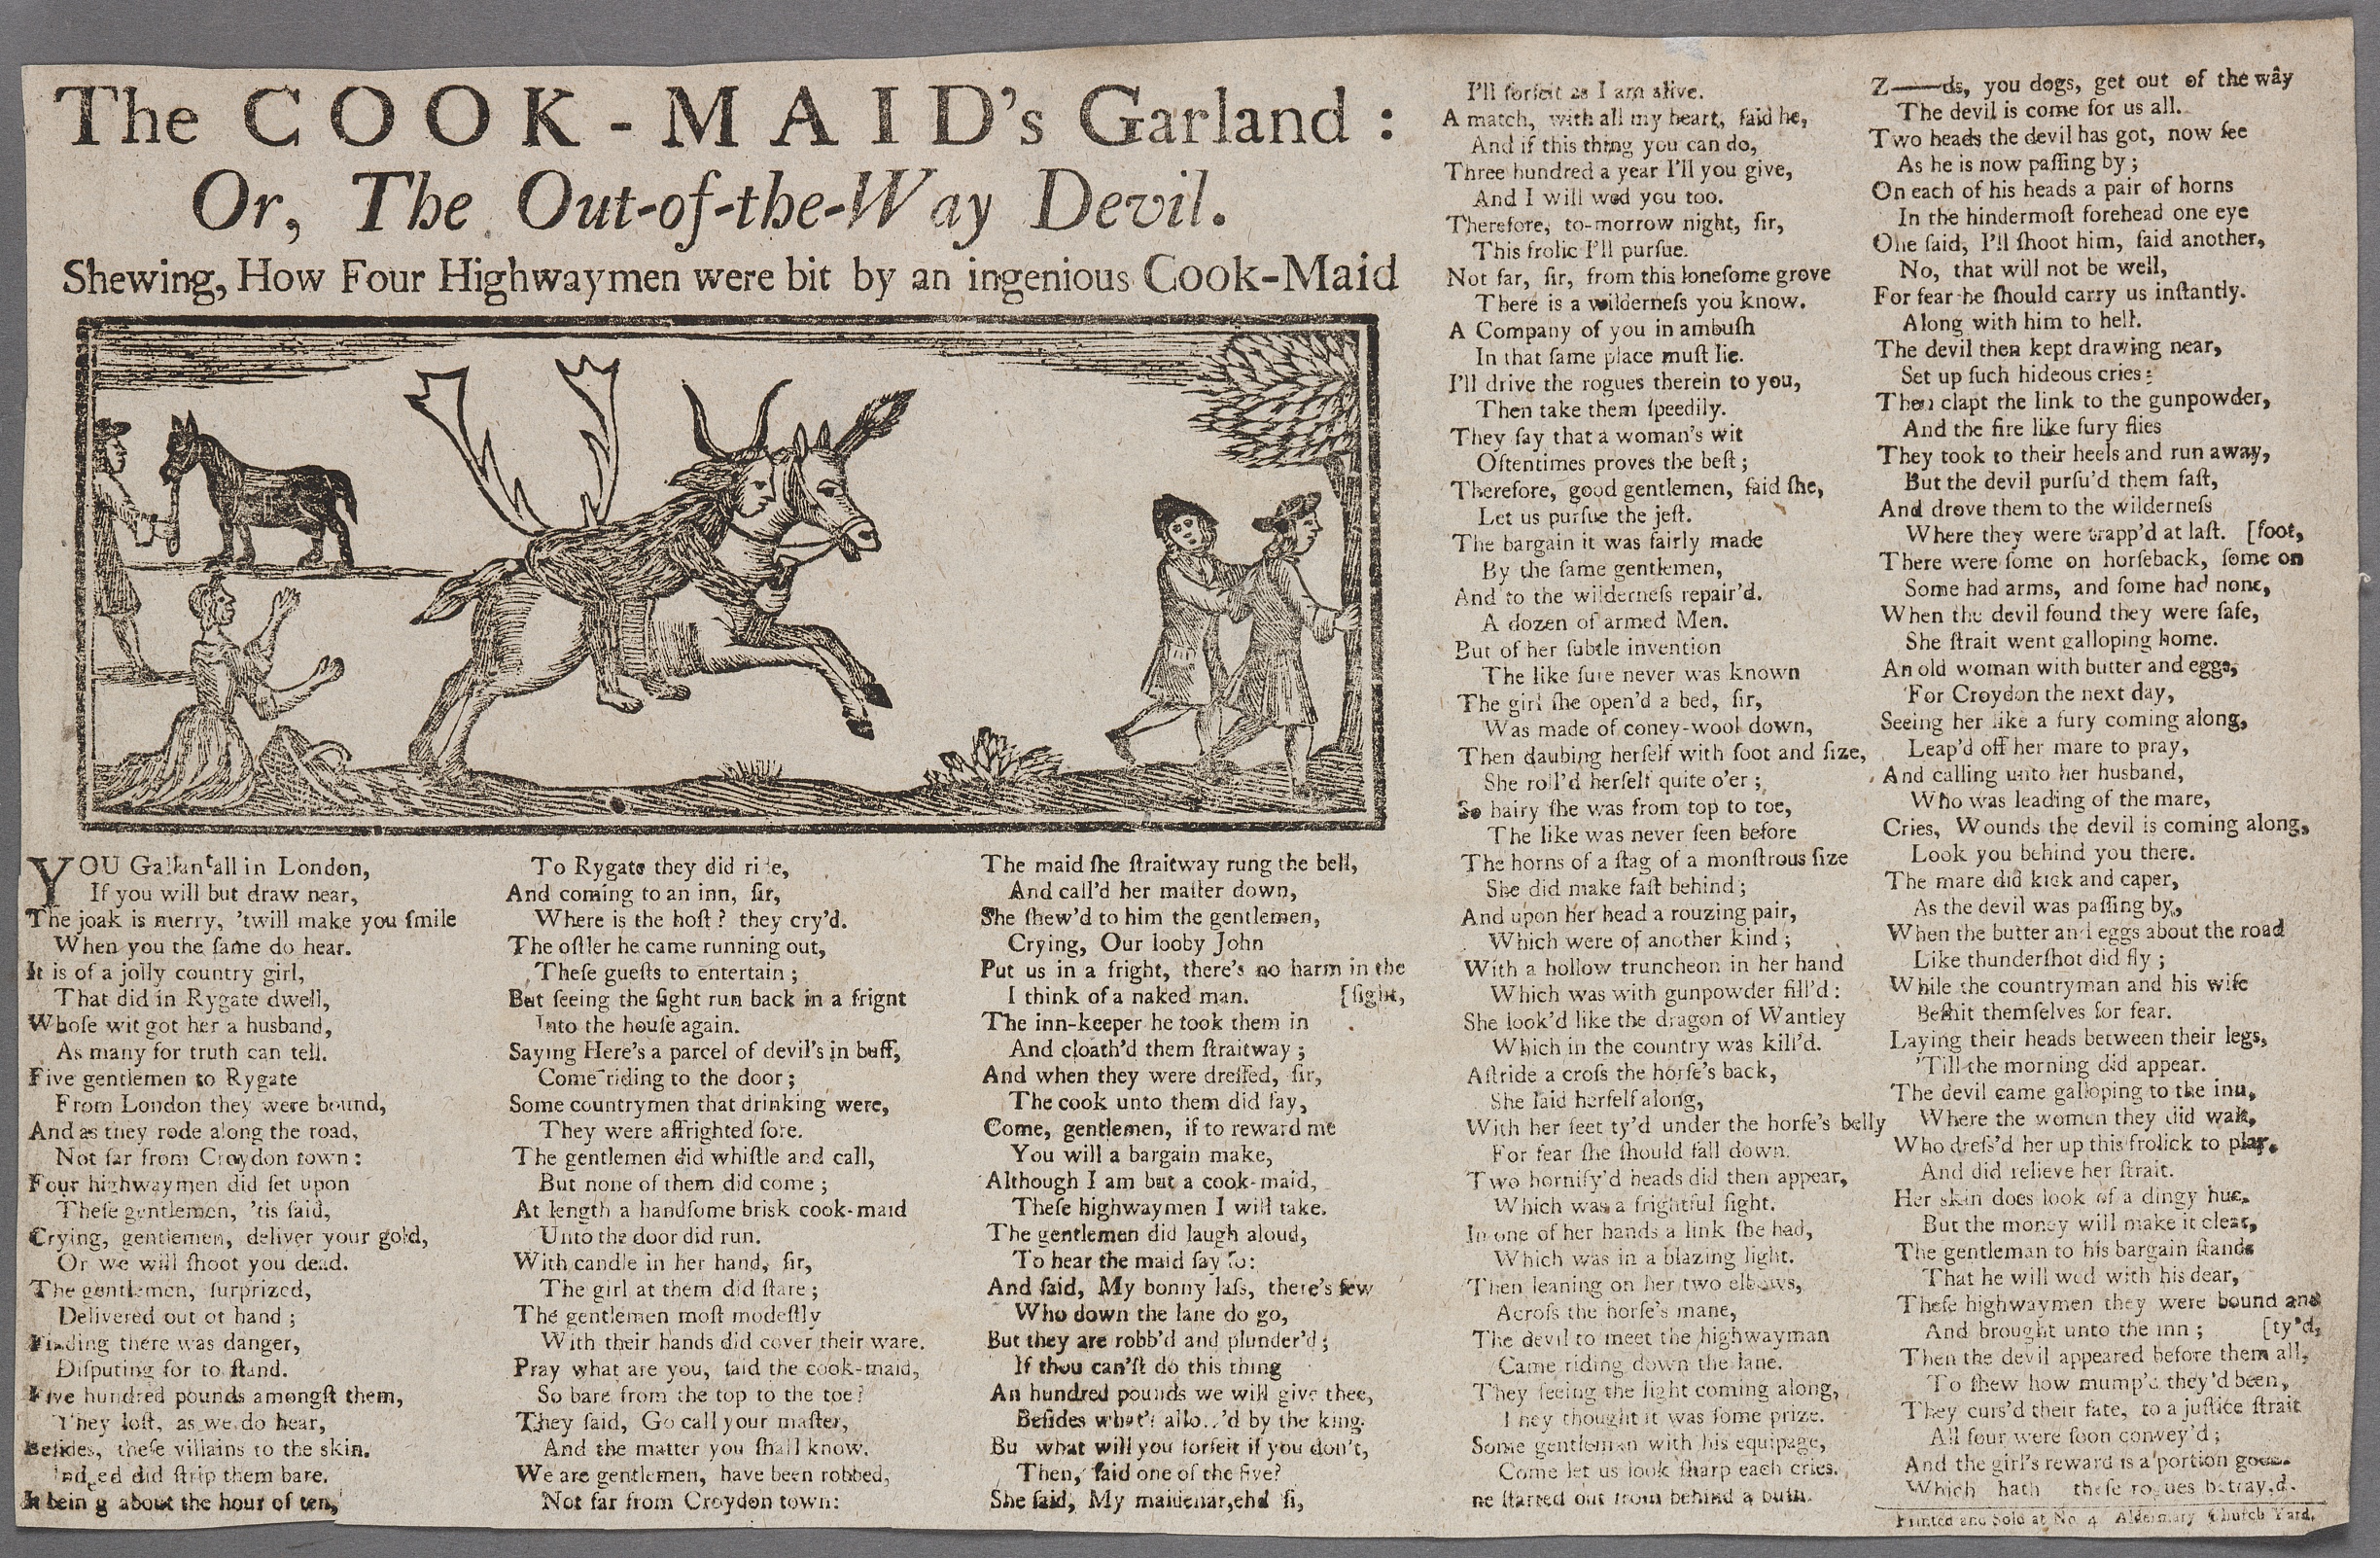 The COOK-MAID's Garland:
Or, The Out-of-the-Way Devil.
Shewing, How Four Highwaymen were bit by an ingenious Cook-Maid
YOU Gallantall in London,
If you will but draw near,
The joak is merry, 'twill make you ſmile
When you the ſame do hear.
It is of a jolly country girl,
That did in Rygate dwell,
Whoſe wit got her a husband,
As many for truth can tell.
Five gentlemen to Rygate
From London they were bound,
And as they rode along the road,
Not far from Croydon town:
Four highwaymen did ſet upon
Theſe gentlemen, 'tis ſaid,
Crying, gentlemen, deliver your gold,
Or we will ſhoot you dead.
The gentlemen, ſurprized,
Delivered out of hand;
Finding there was danger,
Diſputing for to ſtand.
Five hundred pounds amongſt them,
They loſt, as we do hear,
Beſides, theſe villains to the skin.
Indeed did ſtrip them bare.
It bein g about the hour of ten,
To Rygate they did ride,
And coming to an inn, ſir,
Where is the hoſt? they cry'd.
The oſtler he came running out,
Theſe gueſts to entertain;
But ſeeing the ſight run back in a frignt
Into the houſe again.
Saying Here's a parcel of devil's in buff,
Come riding to the door;
Some countrymen that drinking were,
They were affrighted ſore.
The gentlemen did whiſtle and call,
But none of them did come;
At length a handſome brisk cook-maid
Unto the door did run.
With candle in her hand, ſir,
The girl at them did ſtare;
The gentlemen moſt modeſtly
With their hands did cover their ware.
Pray what are you, ſaid the cook-maid,
So bare from the top to the toe?
They ſaid, Go call your maſter,
And the matter you ſhall know.
We are gentlemen, have been robbed,
Not far from Croydon town:
The maid ſhe ſtraitway rung the bell,
And call'd her maſter down,
She ſhew'd to him the gentlemen,
Crying, Our looby John
Put us in a fright, there's no harm in the
I think of a naked man. [ſight,
The inn-keeper he took them in
And cloath'd them ſtraitway;
And when they were dreſſed, ſir,
The cook unto them did ſay,
Come, gentlemen, if to reward me
You will a bargain make,
Although I am but a cook-maid,
Theſe highwaymen I will take.
The gentlemen did laugh aloud,
To hear the maid ſay ſo:
And ſaid, My bonny laſs, there's few
Who down the lane do go,
But they are robb'd and plunder'd;
If thou can'ſt do this thing
An hundred pounds we will give thee,
Beſides what's allo..'d by the king.
Bu what will you forfeit if you don't,
Then, ſaid one of the five?
She ſaid, My
I'll forfeit as I am alive.
A match, with all my heart, ſaid he,
And if this thing you can do,
Three hundred a year I'll you give,
And I will wed you too.
Therefore, to-morrow night, ſir,
This frolic I'll purſue.
Not far, ſir, from this loneſome grove
There is a wilderneſs you know.
A Company of you in ambuſh
In that ſame place muſt lie.
I'll drive the rogues therein to you,
Then take them ſpeedily.
They ſay that a woman's wit
Oftentimes proves the beſt;
Therefore, good gentlemen, ſaid ſhe,
Let us purſue the jeſt.
The bargain it was fairly made
By the ſame gentlemen,
And to the wilderneſs repair'd.
A dozen of armed Men.
But of her ſubtle invention
The like ſure never was known
The girl ſhe open'd a bed, ſir,
Was made of coney-wool down,
Then daubing herſelf with ſoot and ſize,
She roll'd herſelf quite o'er;
So hairy ſhe was from top to toe,
The like was never ſeen before
The horns of a ſtag of a monſtrous ſize
She did make faſt behind;
And upon her head a rouzing pair,
Which were of another kind;
With a hollow truncheon in her hand
Which was with gunpowder fill'd:
She look'd like the dragon of Wantley
Which in the country was kill'd.
Aſtride a croſs the horſe's back,
She laid herſelf along,
With her feet ty'd under the horſe's belly
For fear ſhe ſhould fall down.
Two hornify'd heads did then appear,
Which was a frightful ſight.
In one of her hands a link ſhe had,
Which was in a blazing light.
Then leaning on her two elbows,
Acroſs the horſe's mane,
The devil to meet the highwayman
Came riding down the lane.
They ſeeing the light coming along,
They thought it was ſome prize.
Some gentleman with his equipage,
Come let us look ſharp each cries.
ne ſtarted out from behind a buſh.
Z——ds, you dogs, get out of the way
The devil is come for us all.
Two heads the devil has got, now ſee
As he is now paſſing by;
On each of his heads a pair of horns
In the hindermoſt forehead one eye
One ſaid, I'll ſhoot him, ſaid another,
No, that will not be well,
For fear he ſhould carry us inſtantly.
Along with him to hell.
The devil then kept drawing near,
Set up ſuch hideous cries:
Then clapt the link to the gunpowder,
And the fire like fury flies
They took to their heels and run away,
But the devil purſu'd them faſt,
And drove them to the wilderneſs
Where they were trapp'd at laſt. [foot,
There were ſome on horſeback, ſome on
Some had arms, and ſome had none,
When the devil found they were ſafe,
She ſtrait went galloping home.
An old woman with butter and eggs,
For Croydon the next day,
Seeing her like a fury coming along,
Leap'd off her mare to pray,
And calling unto her husband,
Who was leading of the mare,
Cries, Wounds the devil is coming along,
Look you behind you there.
The mare did kick and caper,
As the devil was paſſing by,
When the butter and eggs about the road
Like thunderſhot did fly;
While the countryman and his wife
Beſhit themſelves for fear.
Laying their heads between their legs,
'Till the morning did appear.
The devil came galloping to the inn,
Where the women they did wait,
Who dreſs'd her up this frolick to play,
And did relieve her ſtrait.
Her skin does look of a dingy hue,
But the money will make it clear,
The gentleman to his bargain ſtands
That he will wed with his dear,
Theſe highwaymen they were bound and
And brought unto the inn; [ty'd,
Then the devil appeared before them all,
To ſhew how mump'd they'd been,
They curs'd their fate, to a juſtice ſtrait
All four were ſoon convey'd;
And the girl's reward is a portion good
Which hath theſe rogues betray,d.
Printed and Sold at No. 4 Aldermary Church Yard.